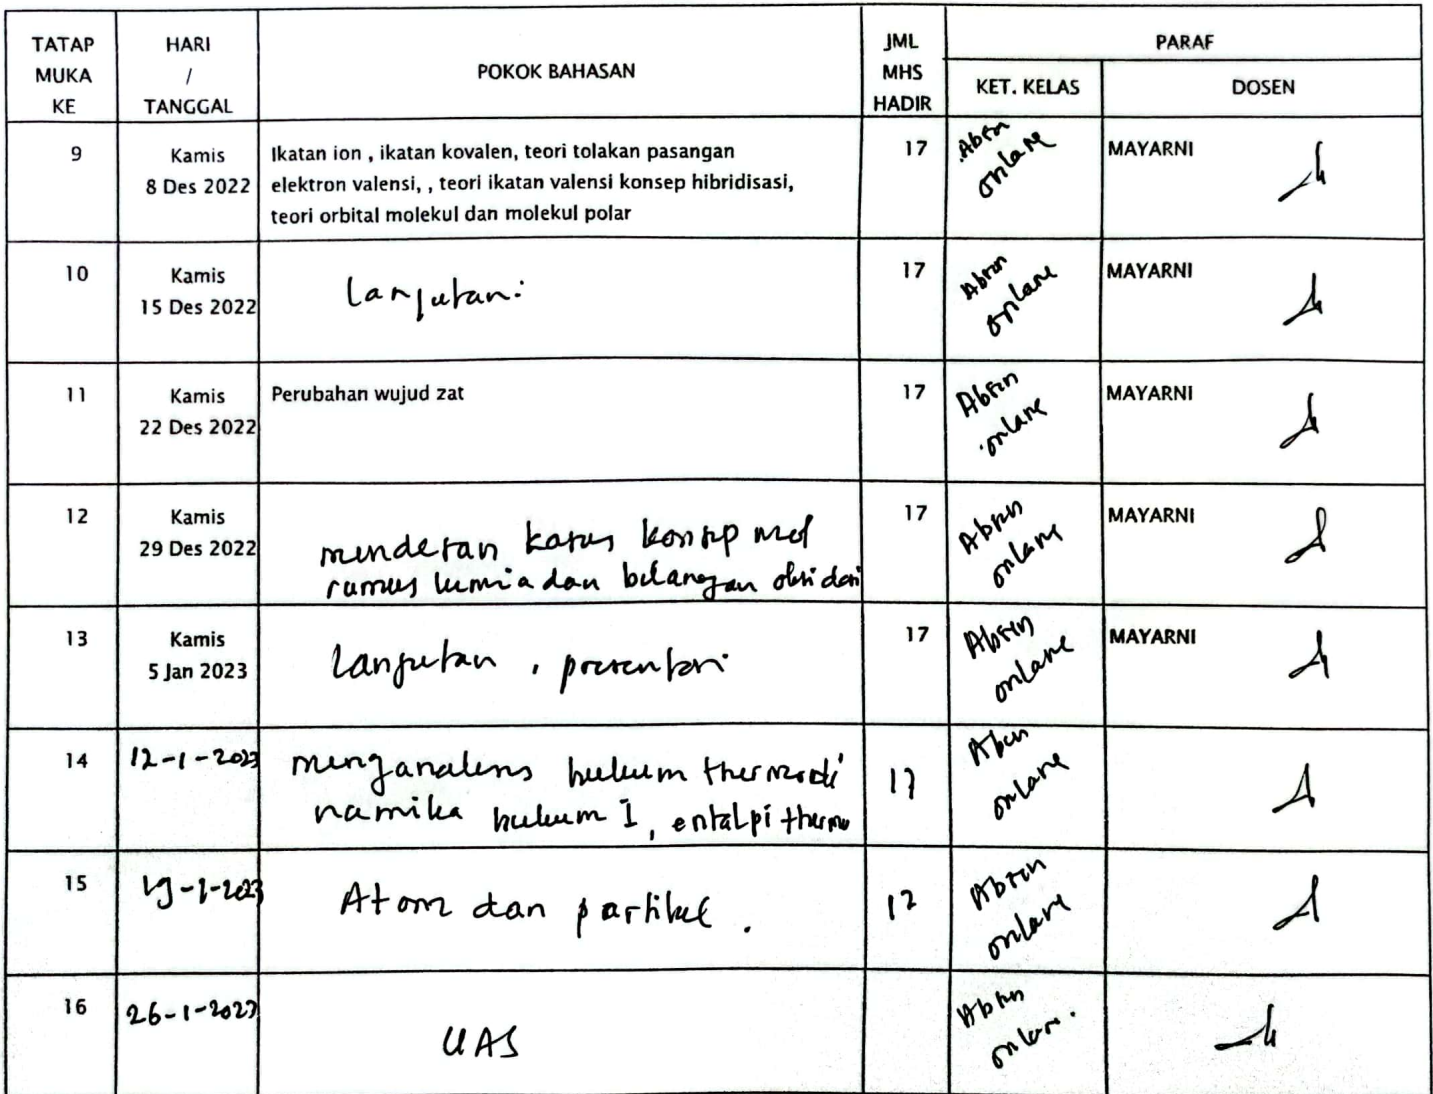 TATAP MUKA KE
HARI / TANGGAL
POKOK BAHASAN
JML MHS HADIR
PARAF
KET. KELAS
DOSEN
9
Kamis
8 Des 2022
Ikatan ion , ikatan kovalen, teori tolakan pasangan
elektron valensi, , teori ikatan valensi konsep hibridisasi,
teori orbital molekul dan molekul polar
17
Absen
onlane
MAYARNI
10
Kamis
15 Des 2022
Lanjutan:
17
Absen
onlane
MAYARNI
11
Kamis
22 Des 2022
Perubahan wujud zat
17
Absen
onlane
MAYARNI
12
Kamis
29 Des 2022
konsep mol
rumus kimia dan
17
Absen
onlane
MAYARNI
13
Kamis
5 Jan 2023
Lanjutan , presentasi
17
Absen
onlane
MAYARNI
14
12-1-2023
menganalisis hukum thermodi
namika hukum I, entalpi thermo
17
Absen
onlane
15
19-1-2023
Atom dan partikel .
Absen
onlane
16
26-1-2023
UAS
Absen
onlane.